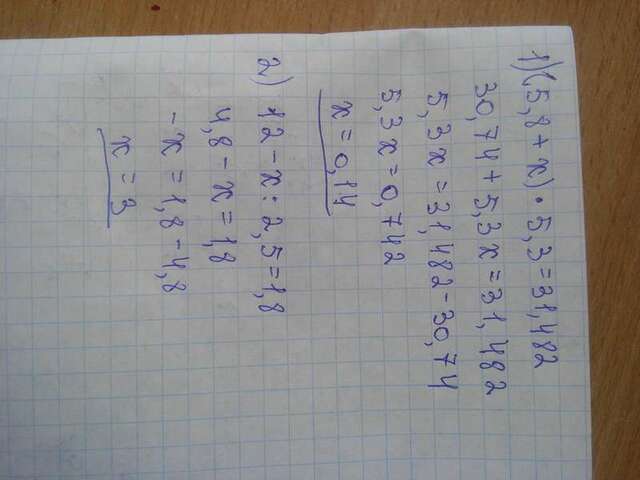 1) (5,8 + x) • 5,3 = 31,482
30,74 + 5,3x = 31,482
5,3x = 31,482 - 30,74
5,3x = 0,742
x = 0,14
2) 12 - x : 2,5 = 1,8
4,8 - x = 1,8
-x = 1,8 - 4,8
x = 3